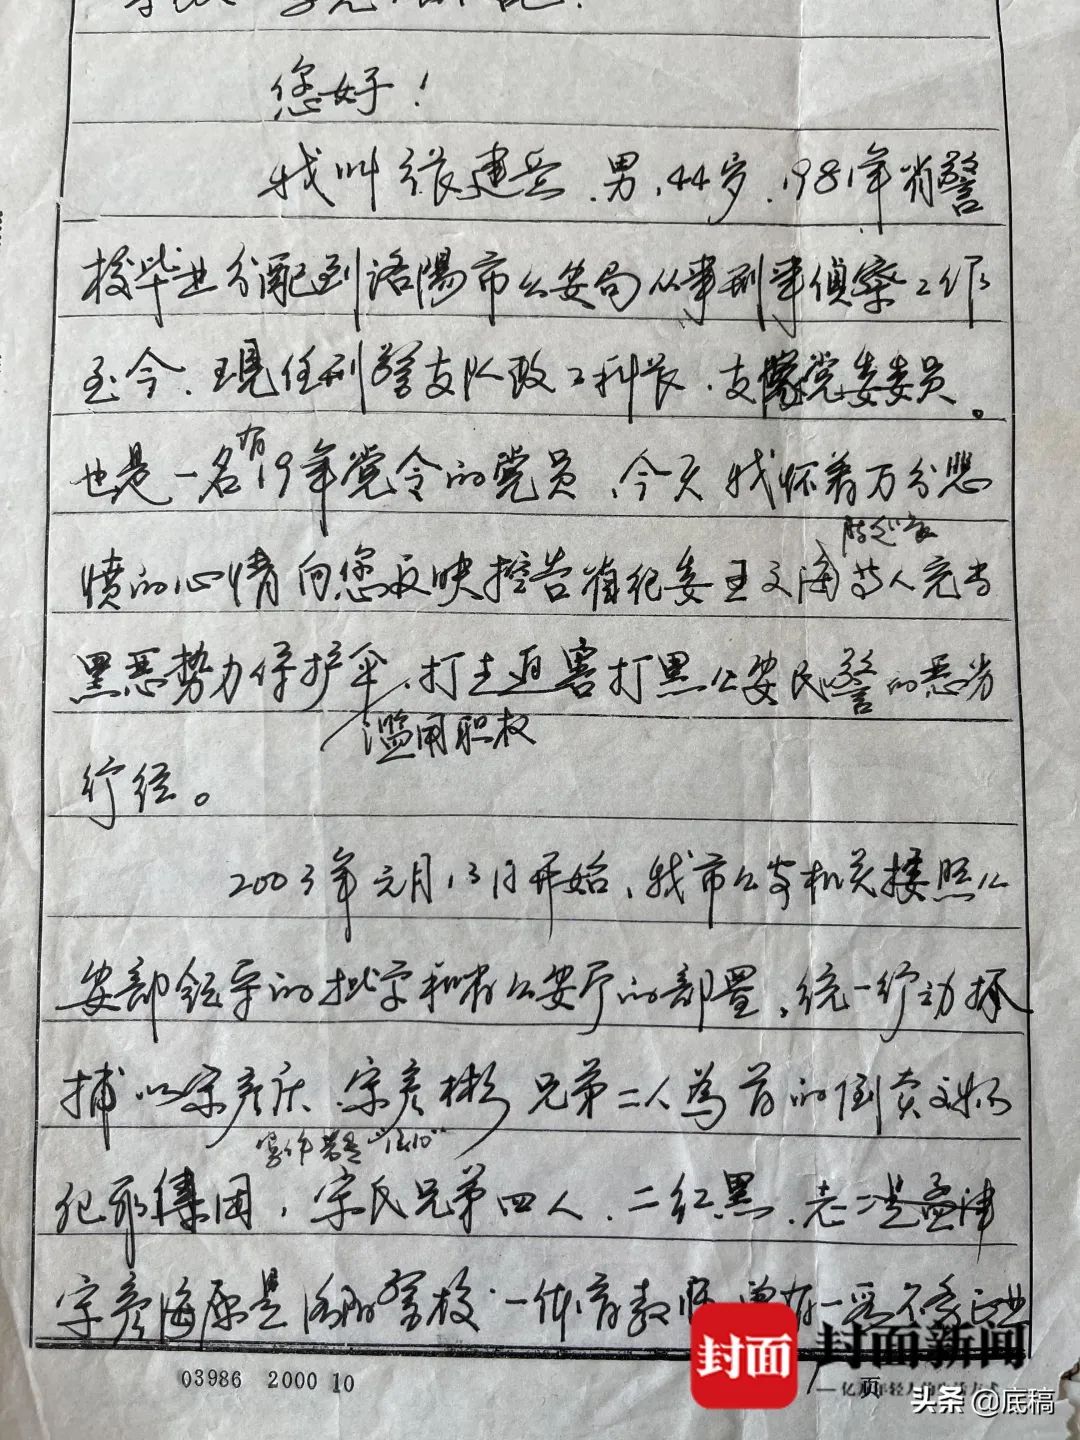 您好！
我叫张建岳、男、44岁、1981年省警
校毕业分配到洛陽市公安局从事刑事侦察工作
至今、現任刑警支队政工科长、支隊党委委员。
也是一名有19年党令的党员、今天我怀着万分悲
愤的心情向您反映控告省纪委王文海等人充当
黑恶势力保护伞、滥用职权打击迫害打黑公安民警的恶劣
行径。
2003年元月13日开始、我市公安机关按照公
安部领导的批字和省公安厅的部署、统一行动抓
捕以宋彦庆、宋彦彬兄弟二人為首的倒卖文物
犯罪集团，宋氏兄弟四人、二红二黑、老二是孟津
宋彦海原是洛阳警校一体育教师
03986 2000 10
封面
封面新闻
页
头条 @底稿